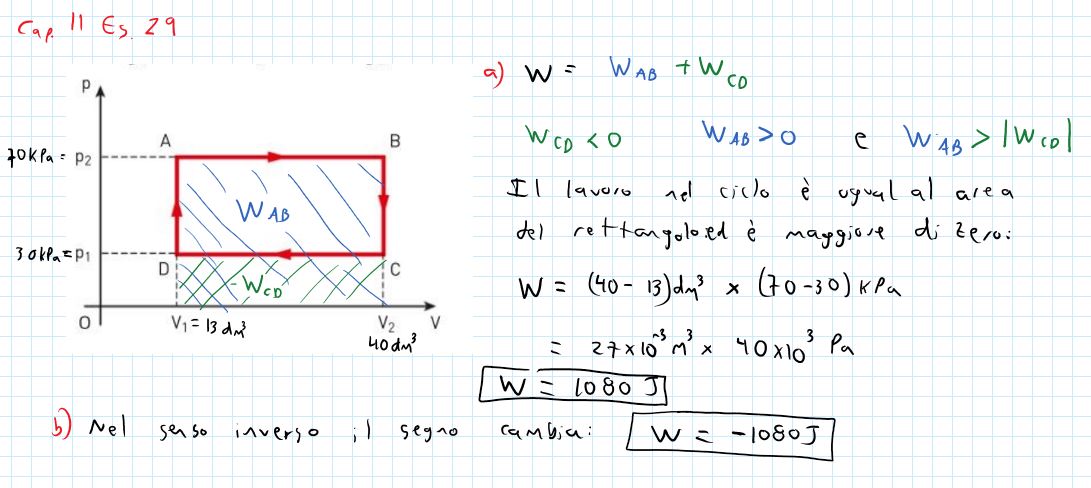 Cap. 11 Es. 29
P
A
B
70kPa = P2
WAB
30kPa = P1
D
C
-WCD
O
V1 = 13 dm³
V2
V
40 dm³
a) W = WAB + WCD
WCD < 0 WAB > 0 e WAB > |WCD|
Il lavoro nel ciclo è ugual al area
del rettangolo ed è maggiore di zero:
W = (40 - 13)dm³ × (70 - 30) kPa
= 27 × 10⁻³ m³ × 40 × 10³ Pa
W = 1080 J
b) Nel senso inverso il segno cambia: W = -1080 J